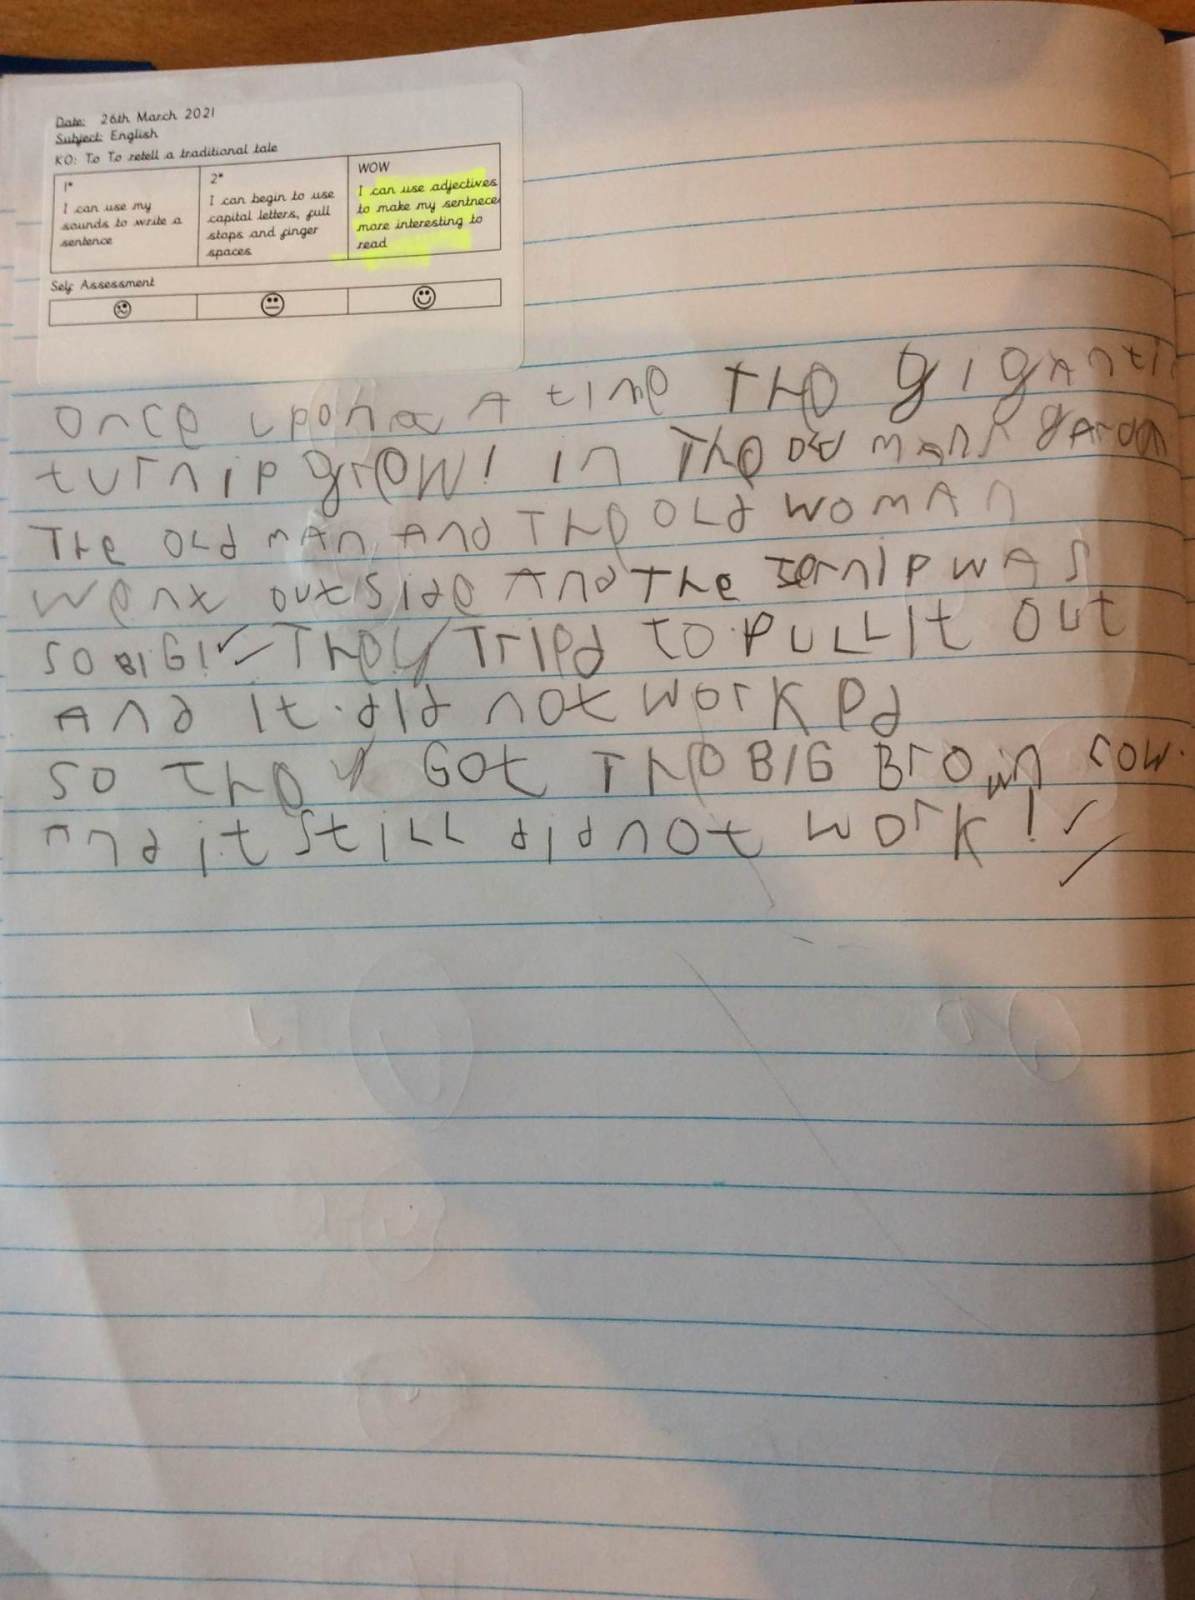 Date: 26th March 2021
Subject: English
KO: To To retell a traditional tale
1*
I can use my
sounds to write a
sentence
2*
I can begin to use
capital letters, full
stops and finger
spaces
WOW
I can use adjectives
to make my sentnece
more interesting to
read
Self Assessment
once upon a time The giganti
turnip grew! in The old mans garden
The old man and The old woman
went outside and The was
so BIG! They Tried to PuLL it out
and it did not worked
so They Got The BIG Brown cow.
and it stiLL did not work!